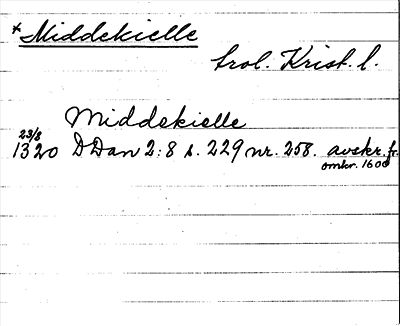 *Middekielle
trol. Krist. l.
Middekielle
23/8
1320 DDan 2:8 s. 229 nr. 258. avskr. fr.
omkr. 1600